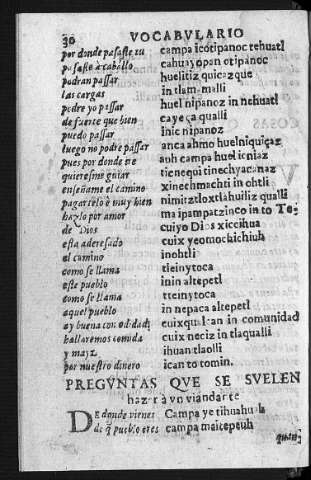 36 VOCABVLARIO
por donde pasaste tu campa icotipanoc tehuatl
pasaste à caballo cahuayopan otipanoc
podran passar huelitiz quizazque
las cargas in tlam-malli
podre yo passar huel nipanoz in nehuatl
de suerte que bien cayeça qualli
puedo passar inic nipanoz
luego no podre passar anca ahmo huelniquiçaz
pues por donde ire auh campa huel icniaz
quieresme guiar tienequi tinechyacanaz
enseñame el camino xinechmachti in ohtli
pagartelo è muy bien nimitztloxtlahuiliz qualli
hazlo por amor ma ipampatzinco in to Te-
de Dios cuiyo Dios xicchihua
esta aderesado cuix yeomochichiuh
el camino inohtli
como se llama tleinytoca
este pueblo inin altepetl
como se llama tleinytoca
aquel pueblo in nepaca altepetl
ay buena comodidad cuixqualcan in comunidad
hallaremos comida cuix neciz in tlaqualli
y mayz ihuan tlaolli
por nuestro dinero ican to tomin.
PREGVNTAS QVE SE SVELEN
hazer à vn viandante
DE donde vienes Campa ye tihuahuala
de q pueblo eres campa maltepeuh